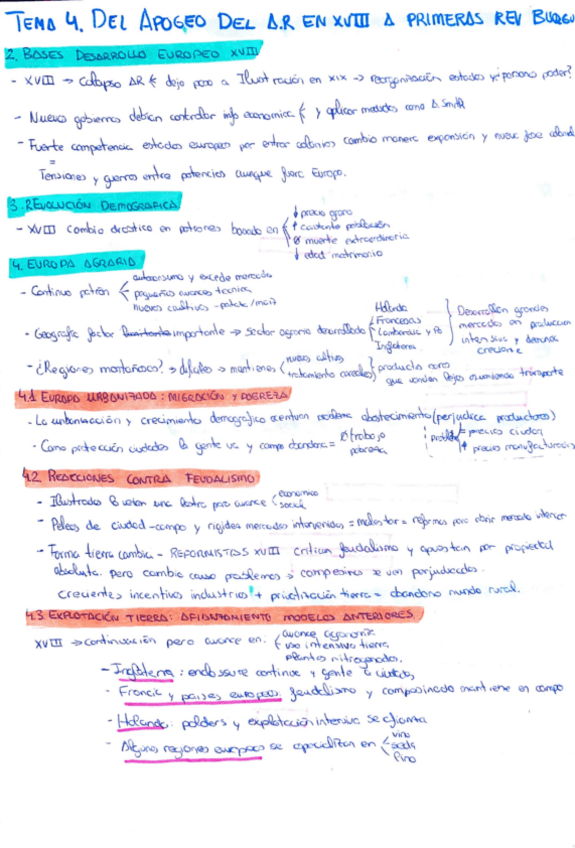 TEMA 4. DEL APOGEO DEL A.R EN XVIII A PRIMERAS REV BURGU
2. BASES DESARROLLO EUROPEO XVIII
- XVIII → colapso AR dejo paso a Ilustración en XIX → reorganización estados y ¿poder?
- Nuevos gobiernos debían controlar info economica y aplicar medidas como A. Smith
- Fuerte competencia estados europeos por entrar colonias cambio manera expansión y nueva fase colonial
=
Tensiones y guerras entre potencias aunque fuera Europa.
3. REVOLUCIÓN DEMOGRÁFICA
- XVIII cambio drástico en patrones basado en
↓ precio grano
↑ constante población
Ø muerte extraordinaria
↓ edad matrimonio
4. EUROPA AGRARIA
- Continuo patrón
autoconsumo y excede mercado
pequeños avances técnica
nuevos cultivos - patata/maíz
- Geografía factor importante → Sector agrario desarrollado
Holanda
Francesas
Inglaterra
Desarrollan grandes mercados en producción intensiva y demanda creciente
- ¿Regiones montañosas? → difíciles → mantienen
nuevos cultivos
tratamiento cereales
producto caro que vendan lejos asumiendo transporte
4.1 EUROPA URBANIZADA: MIGRACIÓN Y POBREZA
- La urbanización y crecimiento demográfico acentúan problema abastecimiento (perjudica productores)
- Como protección ciudades la gente va y campo abandona =
Ø trabajo
pobreza
problema
= precios ciudad
↑ precios manufacturas
4.2 REACCIONES CONTRA FEUDALISMO
- Ilustrados lo veían una lastra para avance
economico
social
- Peleas de ciudad-campo y rigidez mercados intervenidos = malestar = reformas para abrir mercado interior
- Forma tierra cambia - REFORMISTAS XVIII critican feudalismo y apuestan por propiedad
absoluta. pero cambio causa problemas → campesinos se ven perjudicados.
crecientes incentivos industrias + privatización tierra = abandono mundo rural.
4.3 EXPLOTACIÓN TIERRA: AFIANZAMIENTO MODELOS ANTERIORES
XVIII → continuación pero avance en:
avance agronomía
uso intensivo tierra
plantas nitrogenadas.
- Inglaterra: enclosure continue y gente a ciudad,
- Francia y países europeos: feudalismo y campesinado mantiene en campo
- Holanda: polders y explotación intensiva se afianza
- Algunas regiones europeas se especializan en
vino
seda
lino